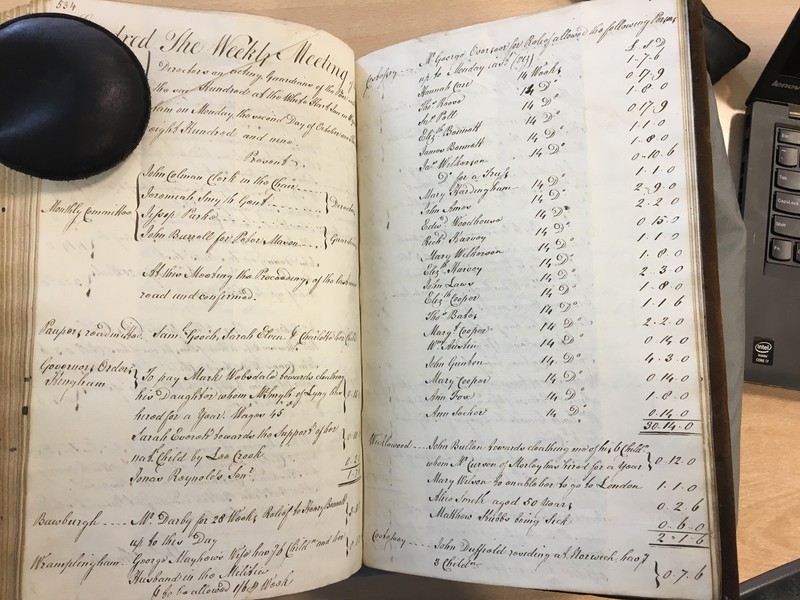 534
dred The Weekly Meeting of
Directors or acting Guardians of the Poor
the said Hundred at the White Hart Inn in
ham on Monday, the second Day of October one
eight Hundred and nine
Present
John Colman Clerk in the Chair
Jeremiah Smyth Gent.
Director
Monthly Committee
Jessop Parke
John Burroll for Peter Mason
Guard
At this Meeting the Proceedings of the last
read and confirmed.
Paupers readmitted. Sam. Gooch, Sarah Elvin & Charlotte her Child
Governors Orders
Hingham
To pay Mark Wobsdale towards cloathing
his Daughter whom Mr. of Lyng has
hired for a Year. Wages 45s
Sarah towards the Support of her
nat. Child by Leo Crook
Jonas Reynolds Senr.
Bawburgh Mr. Darby for 28 Weeks Relief to Henry Bennett
up to this Day
Wramplingham George Mayhows Wife has 6 Childn. and her
Husband in the Militia
to be allowed 1/6 8 Weeks
Costessey Mr. George Overseer for Relief allowed the following Persons
up to Monday £ s D
Hannah Care 14 Weeks 1-7-6
Thos. Reeve 14 Do 0 17 9
Pell 14 Do 1-8-0
Elizth Bennett 14 Do 0 17 9
James Bennett 14 Do 1 1 0
Jas. Wilkerson 14 Do 1-8-0
Do for a Truss 0-10-6
Mary Hardingham 14 Do 1-1-0
John Amos 14 Do 2-9-0
Edwd. Woodhouse 14 Do 2-2-0
Richd. Harvey 14 Do 0 15 0
Mary Wilkerson 14 Do 1 1 0
Elizth Harvey 14 Do 1-8-0
John Laws 14 Do 2-3-0
Elizth Cooper 14 Do 1-8-0
Thos. Bates 14 Do 1-1 6
Margt. Cooper 14 Do 2-2-0
Wm. Austin 14 Do 0 14 0
John Gunton 14 Do 4-3-0
Mary Cooper 14 Do 0 14 0
Ann Gow 14 Do 1-8-0
Ann 14 Do 0 14 0
30-14-0
John Bullen towards cloathing one of his 6 Childn.
whom Mr. Curson of Morley has hired for a Year 0-12-0
Mary Wilson to enable her to go to London 1-1-0
Alice Smith aged 50 Years 0-2-6
Matthew Stubbs being Sick 0-6-0
2-1-6
Costessey John Duffield residing at Norwich, has 7
3 Childn. 0-7-6
Tab
CapsLock
Shift
Fn
intel
CORE i7